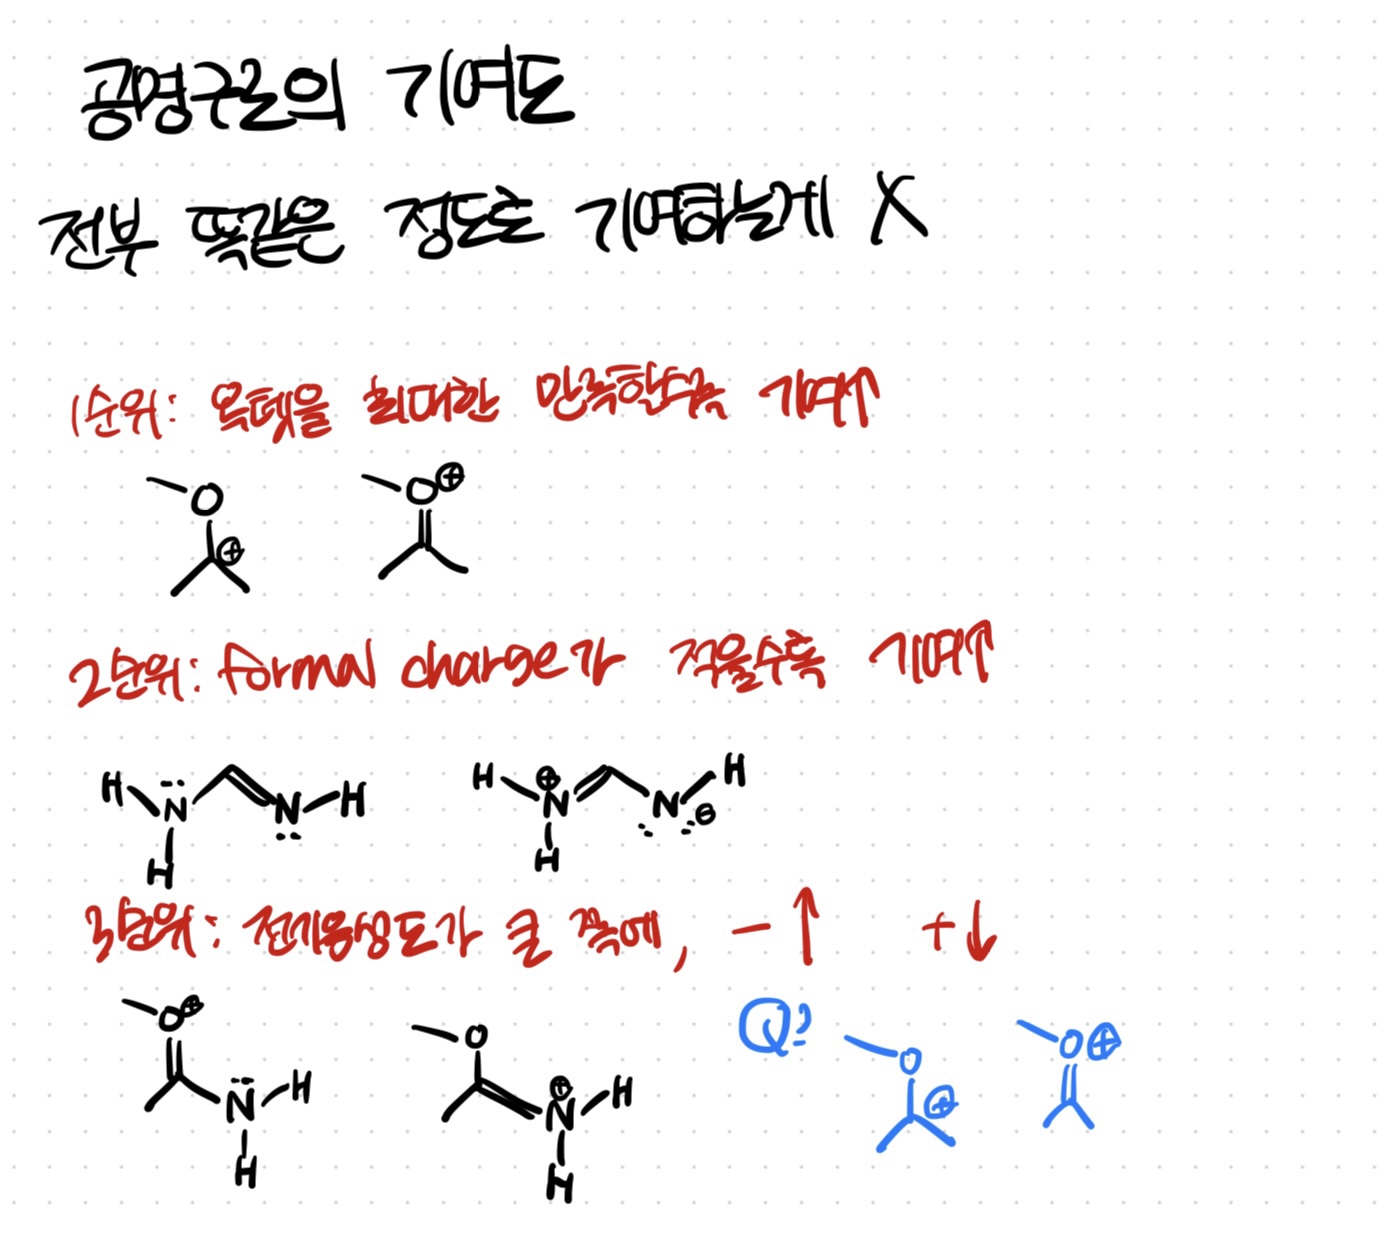 공명구조의 기여도
전부 똑같은 정도로 기여하는게 X
1순위: 옥텟을 최대한 만족할수록 기여↑
O
⊕
O ⊕
2순위: formal charge가 적을수록 기여↑
H N N H
H
H ⊕ N N ⊖ H
H
3순위: 전기음성도가 클 쪽에, - ↑ + ↓
O ⊕
N H
H
O
⊕
N H
H
Q:
O
⊕
O ⊕